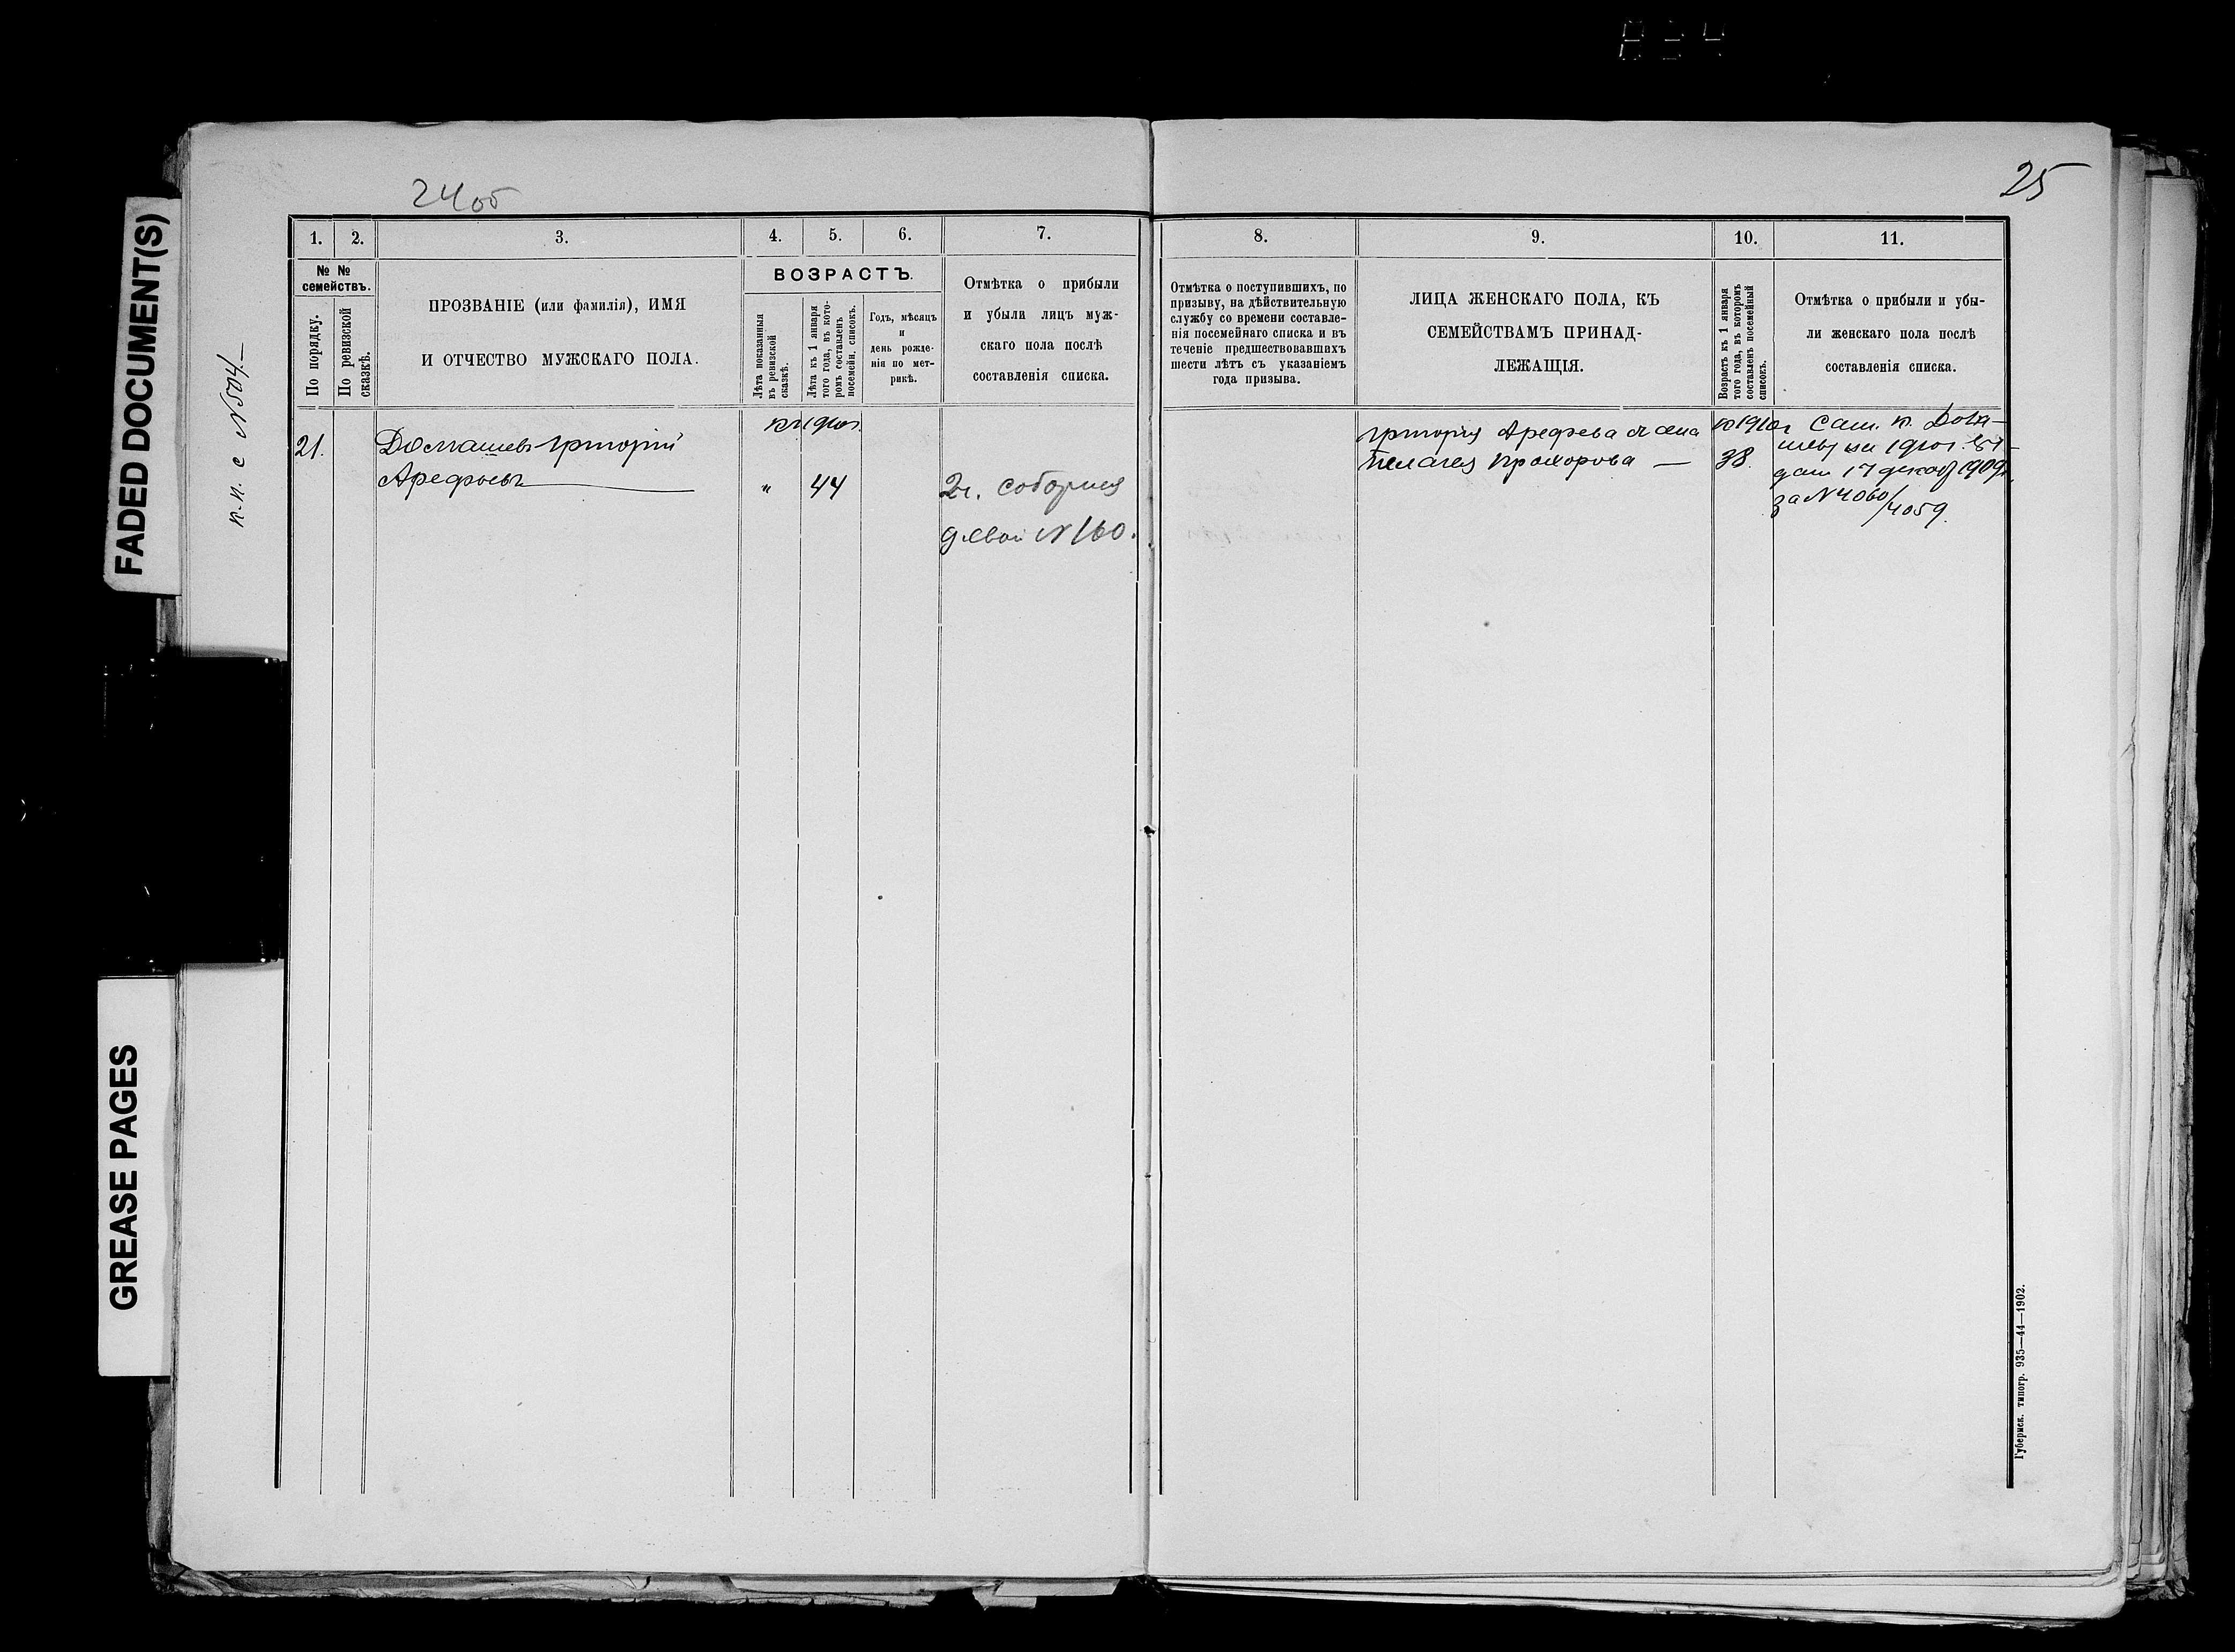 FADED DOCUMENT(S)
GREASE PAGES
24 об
25
к.п. с № 504.—
1. 2. 3. 4. 5. 6. 7.
№ № семействъ.
По порядку.
По ревизской сказкѣ.
ПРОЗВАНІЕ (или фамилія), ИМЯ
И ОТЧЕСТВО МУЖСКАГО ПОЛА.
ВОЗРАСТЪ.
Лѣта показанныя
въ ревизской
сказкѣ.
Лѣта къ 1 января
того года, въ кото-
ромъ составленъ
посемейн. списокъ.
Годъ, мѣсяцъ
и
день рожде-
нія по мет-
рикѣ.
Отмѣтка о прибыли
и убыли лицъ муж-
скаго пола послѣ
составленія списка.
21.
Домашевъ Григорій
Арефьевъ
къ 1910 г.
" 44
2 ч. Соборная
д. № 160.
8. 9. 10. 11.
Отмѣтка о поступившихъ, по
призыву, на дѣйствительную
службу со времени составле-
нія посемейнаго списка и въ
теченіе предшествовавшихъ
шести лѣтъ съ указаніемъ
года призыва.
ЛИЦА ЖЕНСКАГО ПОЛА, КЪ
СЕМЕЙСТВАМЪ ПРИНАД-
ЛЕЖАЩІЯ.
Возрастъ къ 1 января
того года, въ которомъ
составленъ посемейный
списокъ.
Отмѣтка о прибыли и убы-
ли женскаго пола послѣ
составленія списка.
Григорія Арефьева жена
Пелагея Прохорова —
к 1910 г
38.
на 1910 г. вы-
дан 17 декаб 1909 г.
за № 4060/4059.
Губернск. типогр. 935—44—1902.